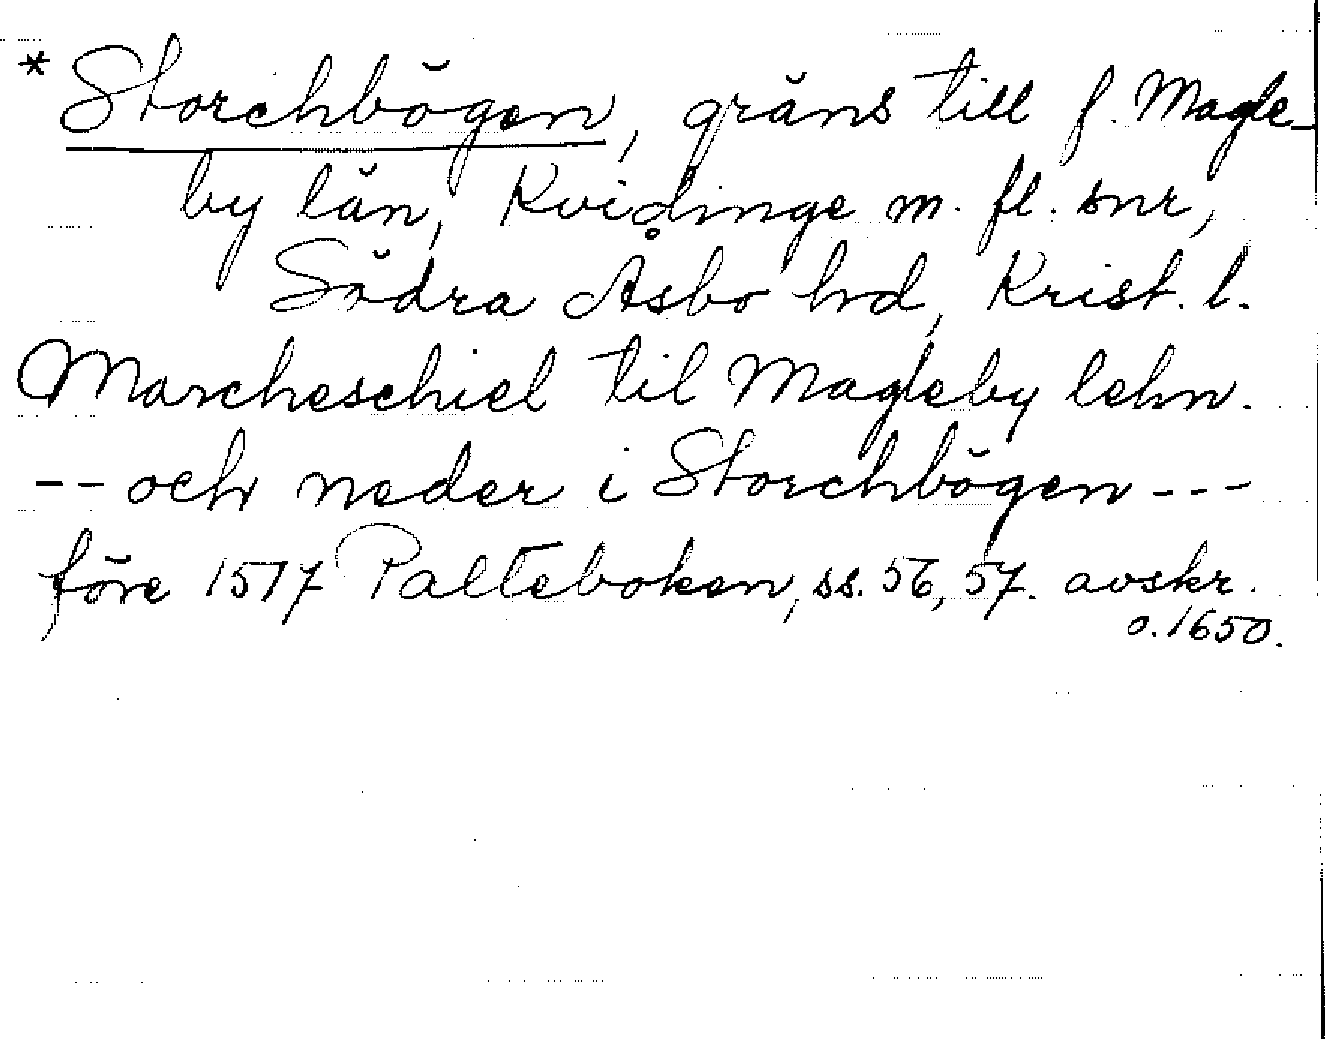 * Storchbögen, gräns till f. Magle-
by län, Kvidinge m. fl. snr,
Södra Åsbo hd, Krist. l.
Marcheschiel til Magleby lehn.
-- och neder i Storchbögen ---
före 1517 Palteboken, ss. 56, 57. avskr.
o. 1650.